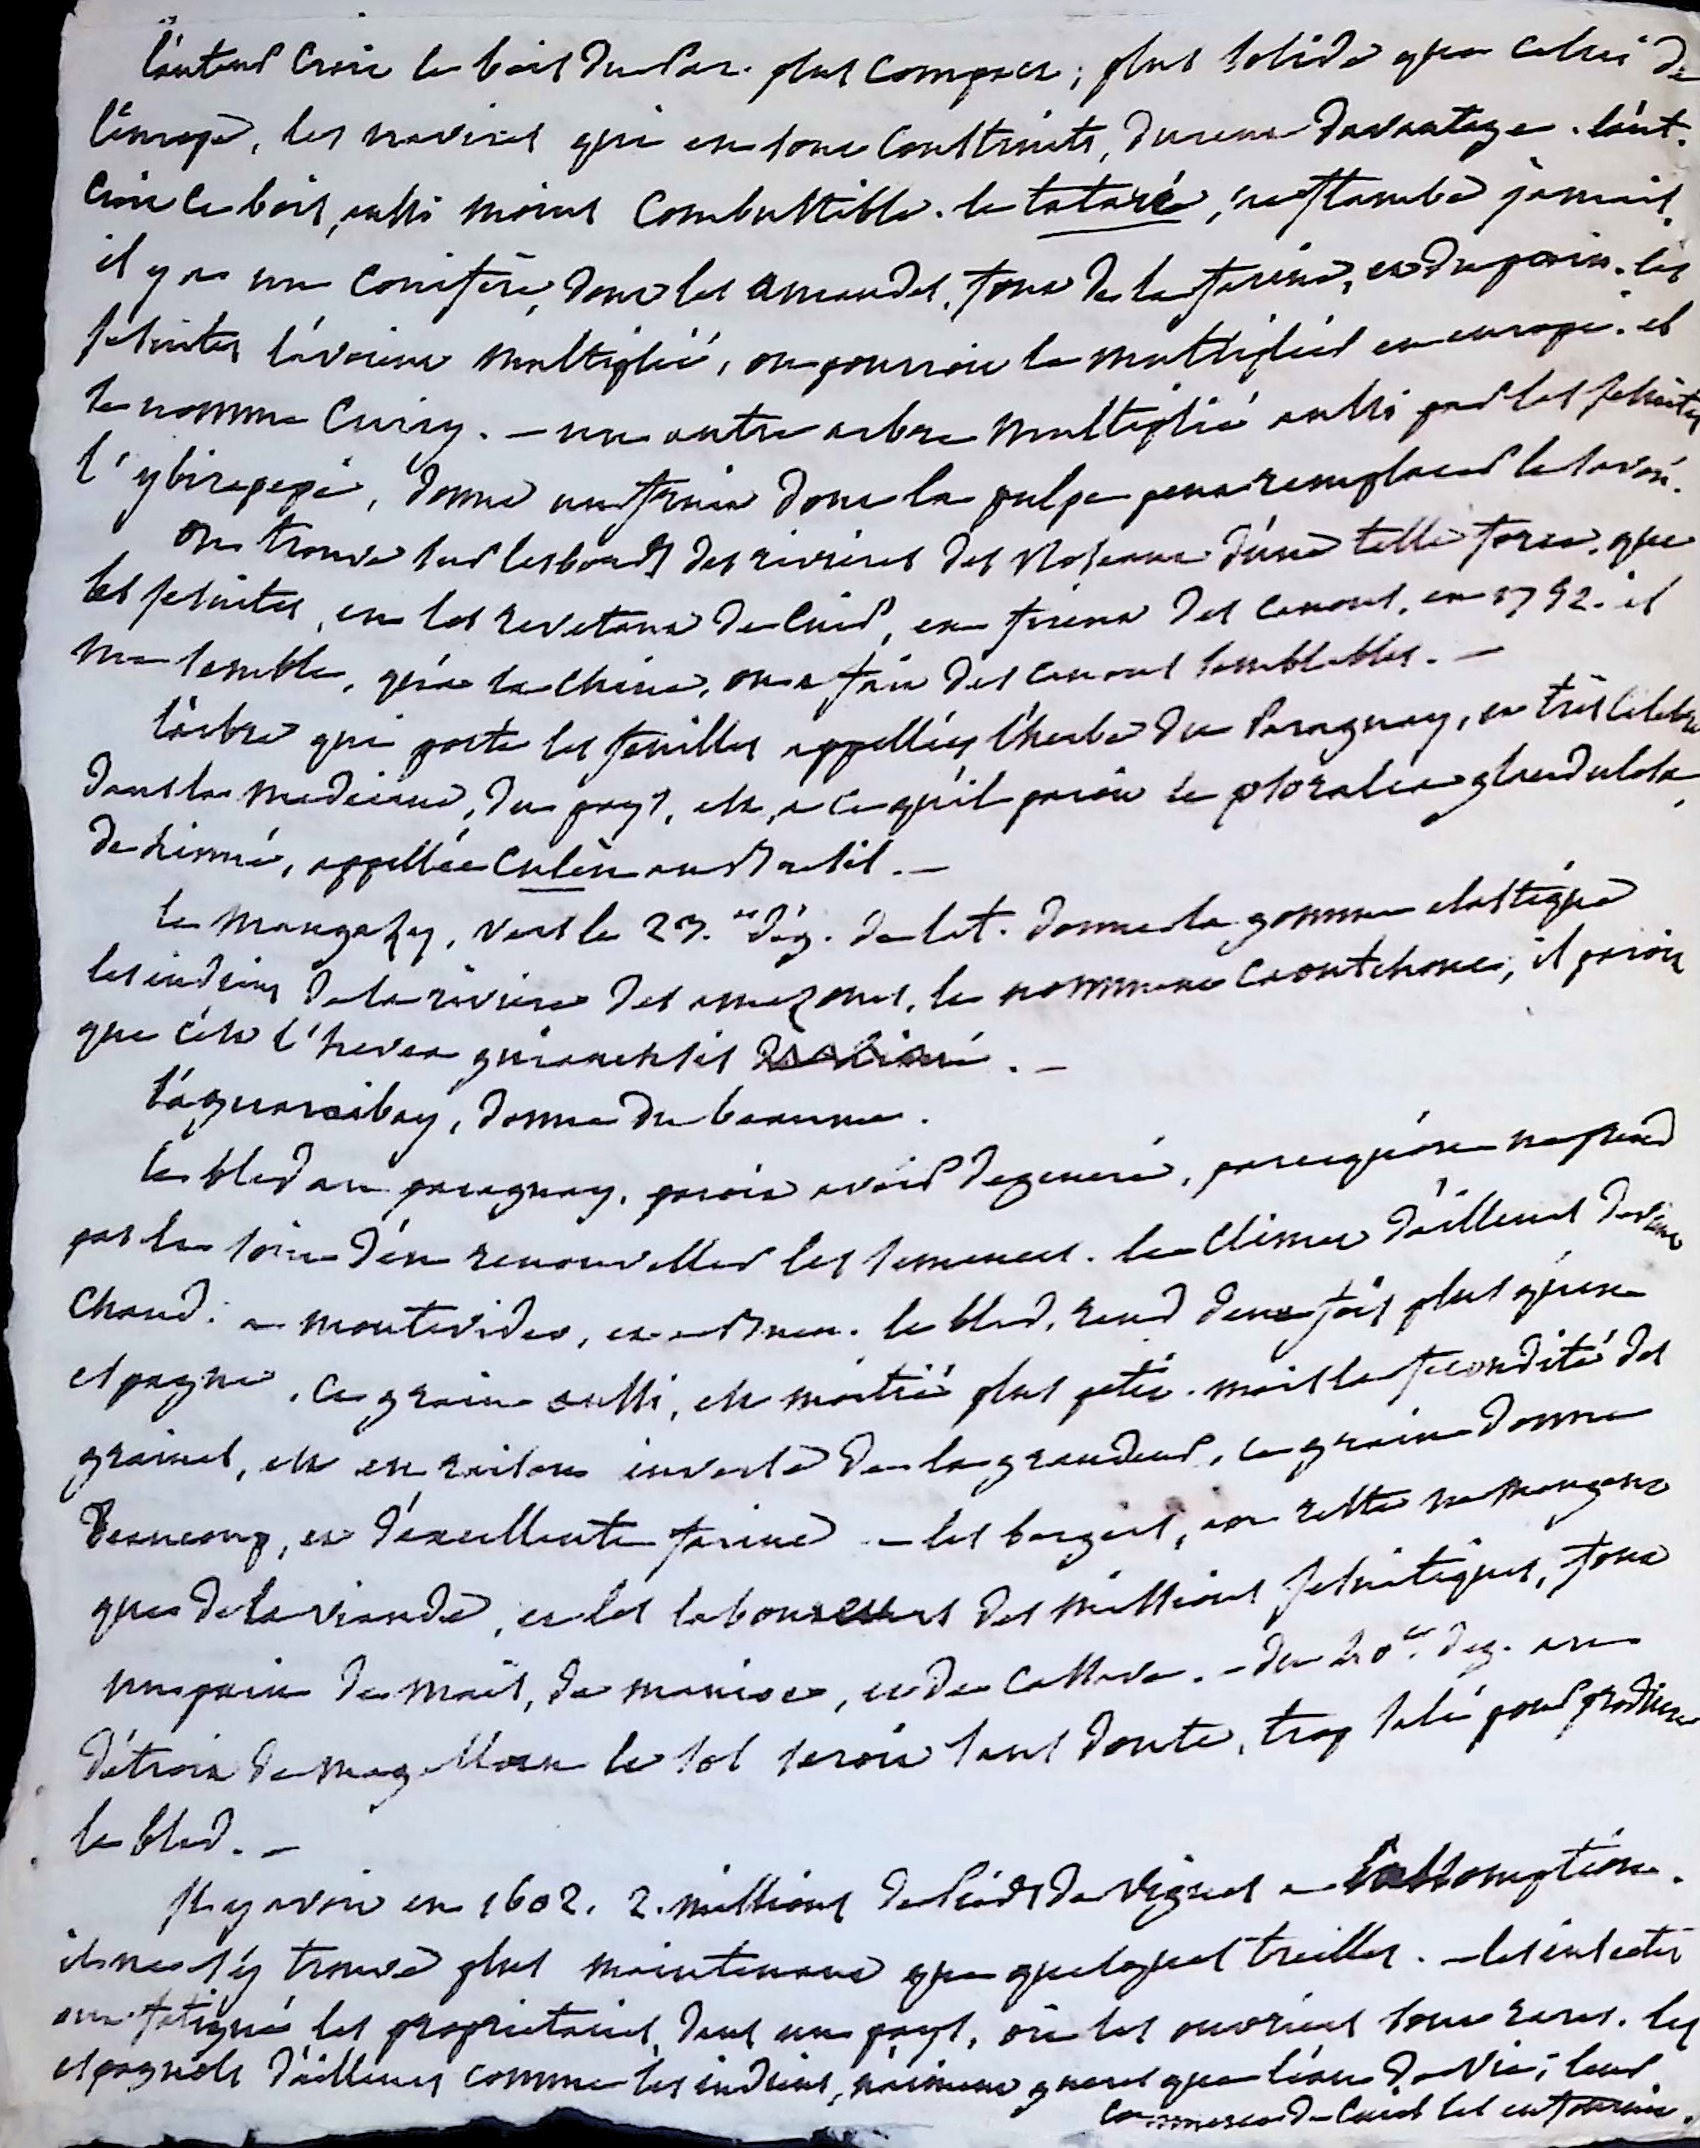 l'auteur croit le bois du Par. plus compact, plus solide que celui de
l'europe, les navires qui en sont construits, durent davantage. l'aut.
croit ce bois, aussi moins combustible. le tataré, ne flambe jamais.
il y a un conifere, dont les amandes, font de la farine, et du pain. les
jesuites l'avoient multiplié, on pourroit le multiplier en europe. il
se nomme Curiy. - un autre arbre multiplié aussi par les jesuites
l'ybirapepé, donne un fruit dont la pulpe peut remplacer le savon.
on trouve sur les bords des rivieres des roseaux d'une telle force, que
les jesuites, en les revetant de cuir, en firent des canons, en 1792. il
me semble, qu'a la chine, on a fait des canons semblables. -
l'arbre qui porte les feuilles appellées l'herbe du Paraguay, et très celebre
dans la medecine, du pays, est, a ce qu'il paroit le psoralea glandulosa,
de Linné, appellée Culén au Bresil. -
le mangazy, vers le 23.es deg. de lat. donne la gomme elastique
les indiens de la riviere des amazones, le nomment caoutchouc, il paroit
que c'est l'hevea guianensis de Linné. -
l'aguaraibay, donne du beaume.
le bled au paraguay, paroit avoir degeneré, parcequ'on ne prend
pas le soin d'en renouveller les semences. le climat d'ailleurs devient
chaud. a montevideo, et a Buen. le bled, rend deux fois plus qu'en
espagne. ce grain aussi, est moitié plus petit. mais la fecondité des
graines, est en raison inverse de la grandeur, ce grain donne
beaucoup, et d'excellente farine - les bergers, au reste ne mangent
que de la viande, et les laboureurs des missions jesuitiques, font
un pain de maïs, de manioc, et de cassave. - du 40es. deg. au
détroit de magellan le sol seroit sans doute, trop salé pour produire
le bled. -
Il y avoit en 1602. 2. millions de Pieds de vignes a l'assomption.
il ne s'y trouve plus maintenant que quelques treilles. - les insectes
ont fatigué les proprietaires, dans un pays, où les ouvriers sont rares. les
espagnols d'ailleurs comme les indiens, n'aiment gueres que l'eau de vie; leur
commerce de cuirs les en fournit.